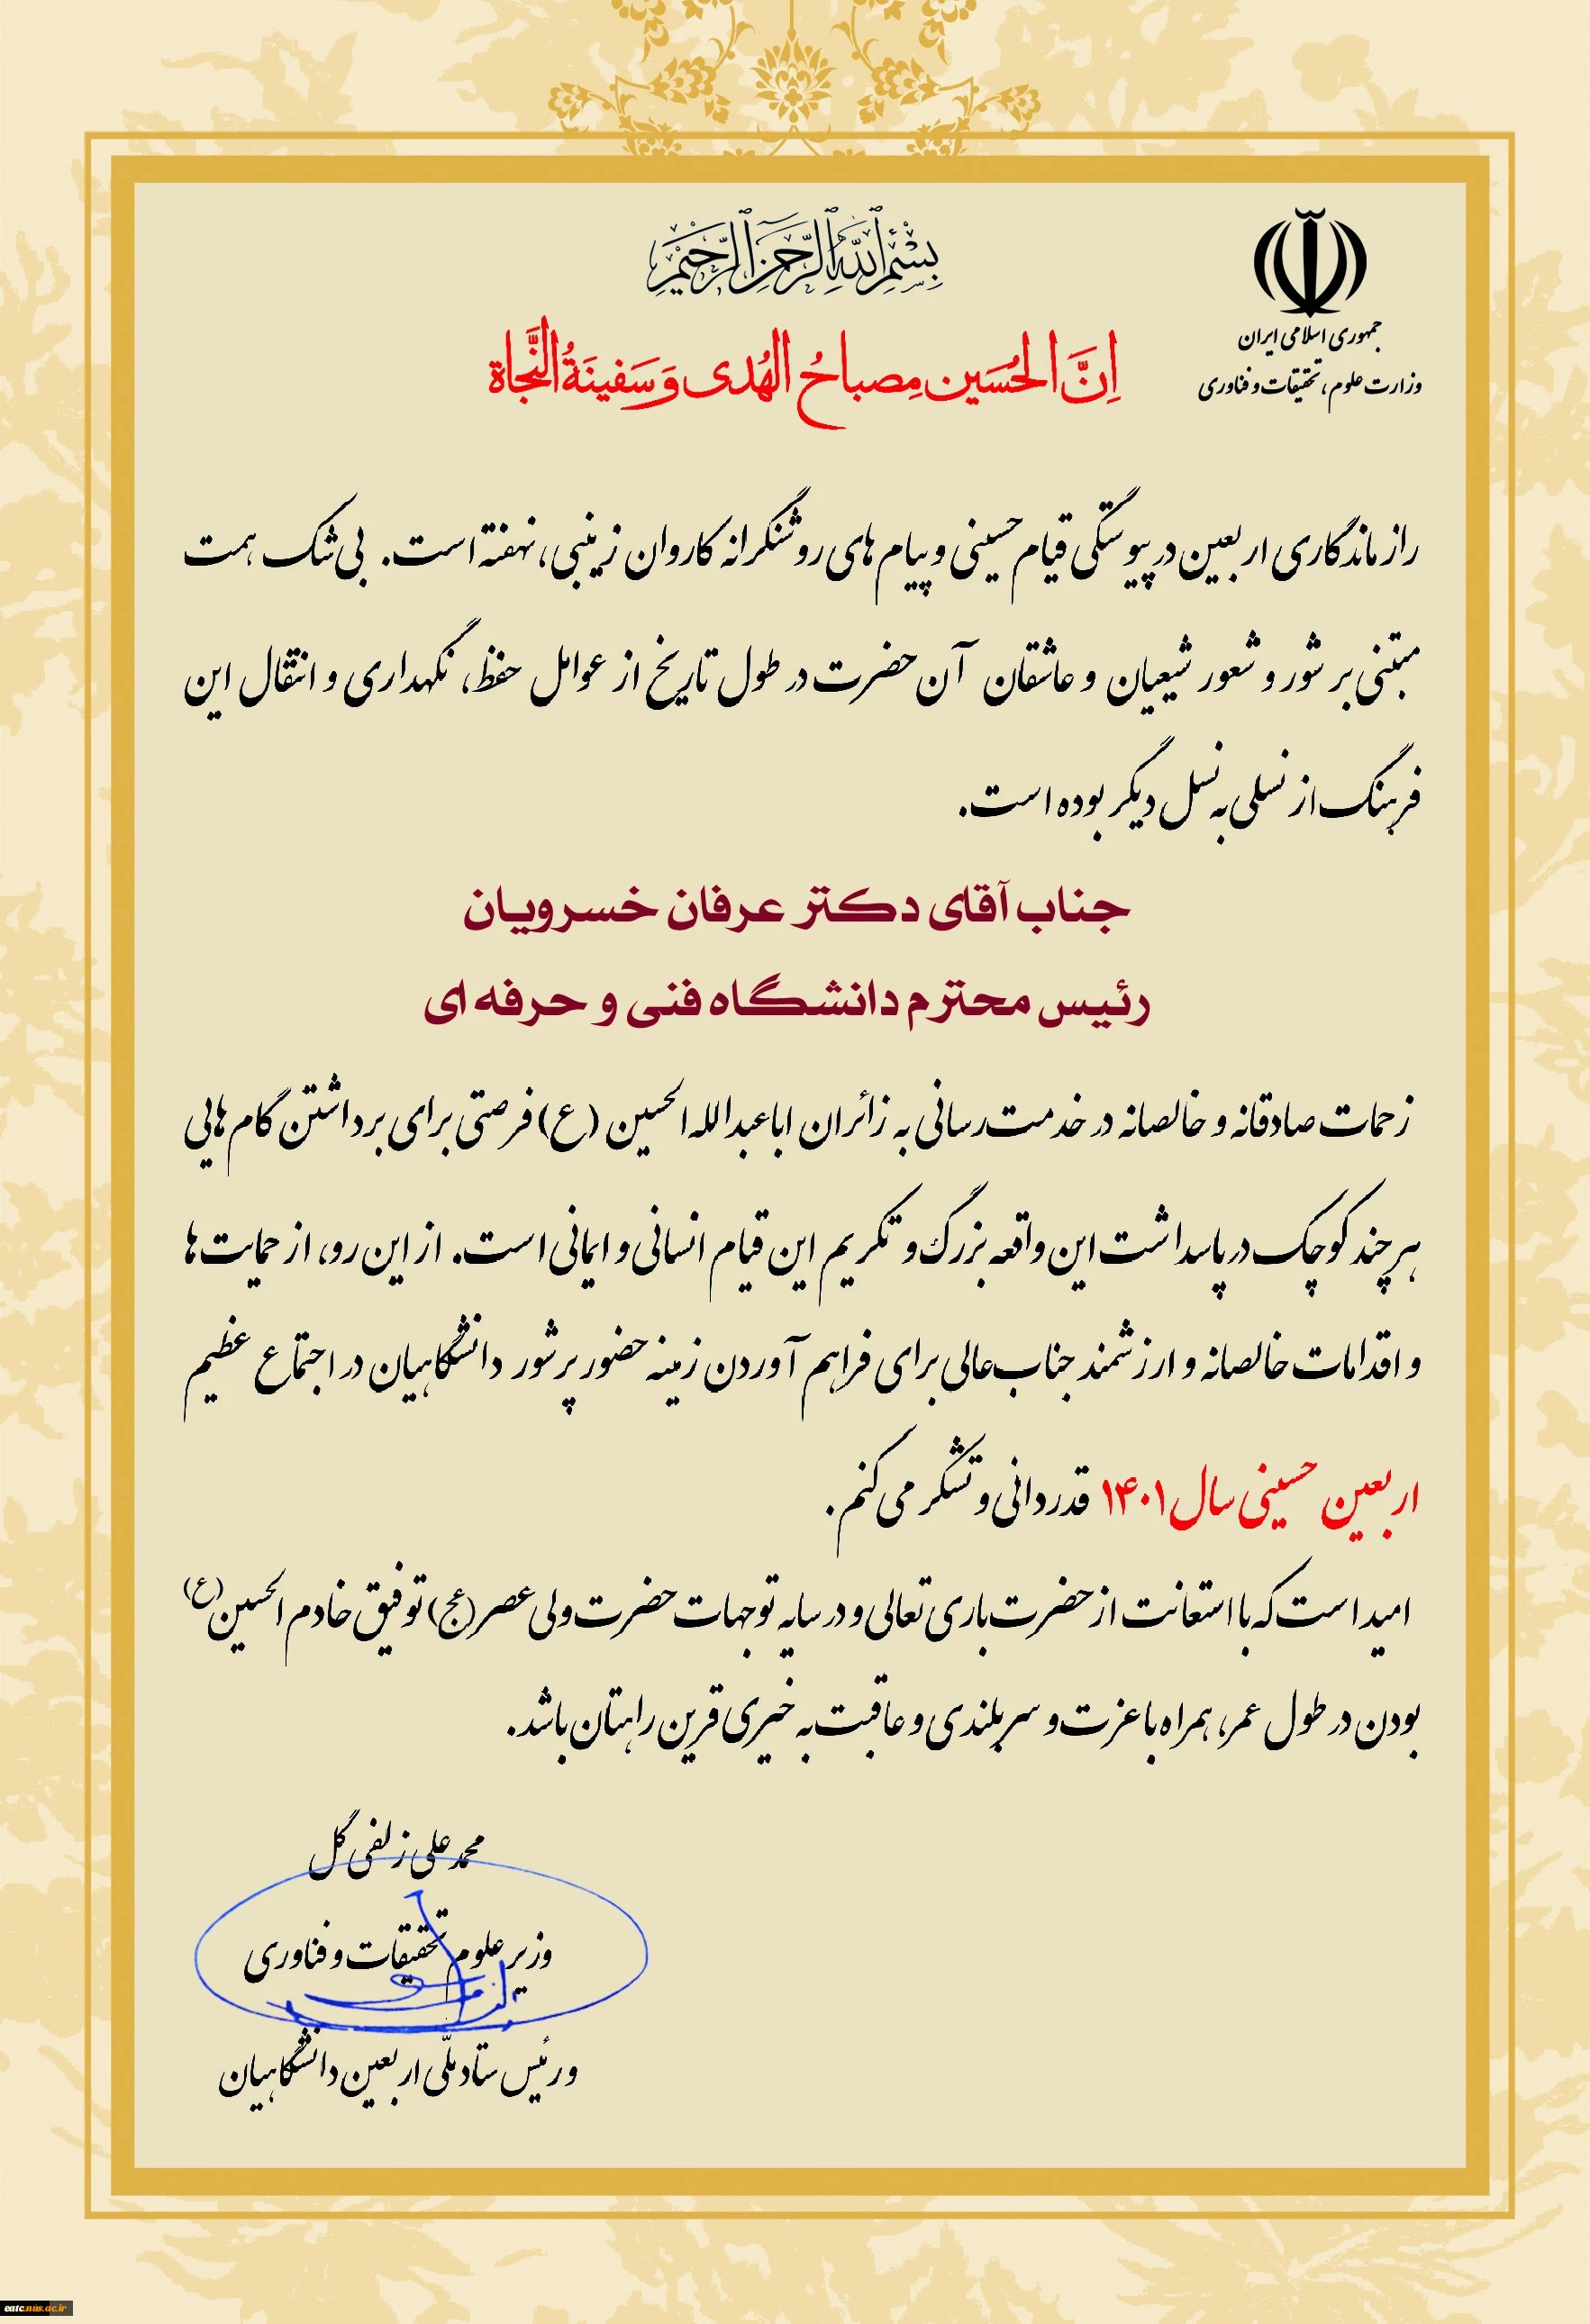 بِسْمِ ٱللَّهِ ٱلرَّحْمَٰنِ ٱلرَّحِيمِ
اِنَّ الحُسَین مِصباحُ الهُدی وَ سَفینَةُ النَّجاة
جمهوری اسلامی ایران
وزارت علوم، تحقیقات و فناوری
راز ماندگاری اربعین در پیوستگی قیام حسینی و پیام های روشنگرانه کاروان زینبی، نهفته است. بی شک همت
مبتنی بر شور و شعور شیعیان و عاشقان آن حضرت در طول تاریخ از عوامل حفظ، نگهداری و انتقال این
فرهنگ از نسلی به نسل دیگر بوده است.
جناب آقای دکتر عرفان خسرویان
رئیس محترم دانشگاه فنی و حرفه ای
زحمات صادقانه و خالصانه در خدمت رسانی به زائران اباعبدالله الحسین (ع) فرصتی برای برداشتن گام هایی
هر چند کوچک در پاسداشت این واقعه بزرگ و تکریم این قیام انسانی و ایمانی است. از این رو، از حمایت ها
و اقدامات خالصانه و ارزشمند جناب عالی برای فراهم آوردن زمینه حضور پر شور دانشگاهیان در اجتماع عظیم
اربعین حسینی سال ۱۴۰۱ قدردانی و تشکر می کنم.
امید است که با استعانت از حضرت باری تعالی و در سایه توجهات حضرت ولی عصر (عج) توفیق خادم الحسین (ع)
بودن در طول عمر، همراه با عزت و سربلندی و عاقبت به خیری قرین راهتان باشد.
محمد علی زلفی گل
وزیر علوم تحقیقات و فناوری
و رئیس ستاد ملّی اربعین دانشگاهیان
eatc.nus.ac.ir